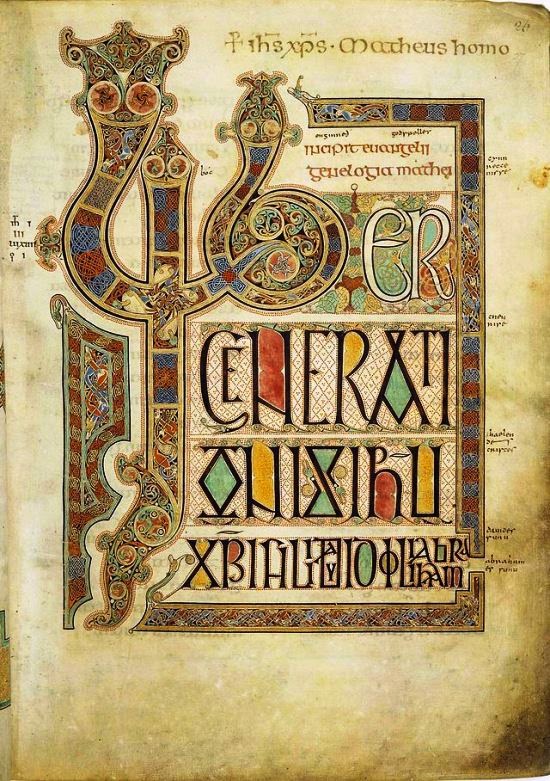 + ihs xps · Matheus homo
onginneð godspelles
incipit euangelii
genelogia mathei
boc
LIBER
GENERATI
ONIS IHU
XPI FILII DAVID FILII ABRAHAM
haelen
des
cristes
dauides
sunu
abraham
es sunu